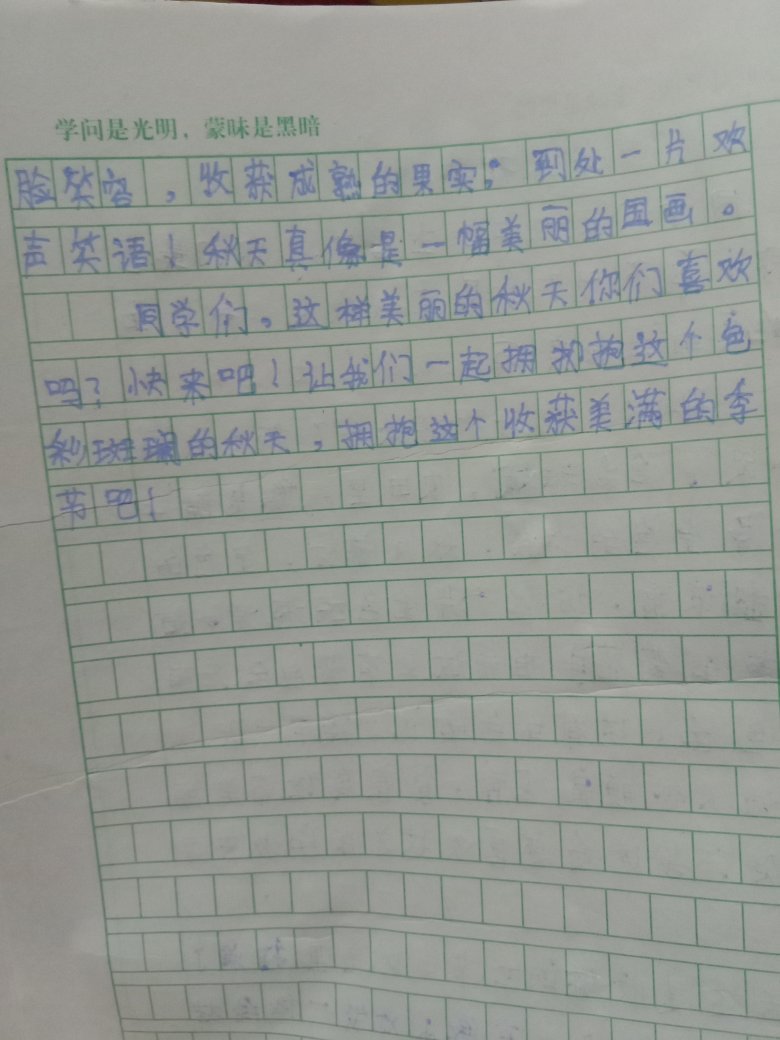 学问是光明，蒙昧是黑暗
脸笑容，收获成熟的果实；到处一片欢
声笑语！秋天真像是一幅美丽的国画。
同学们。这样美丽的秋天你们喜欢
吗？快来吧！让我们一起拥抱这个色
彩斑斓的秋天，拥抱这个收获美满的季
节吧！